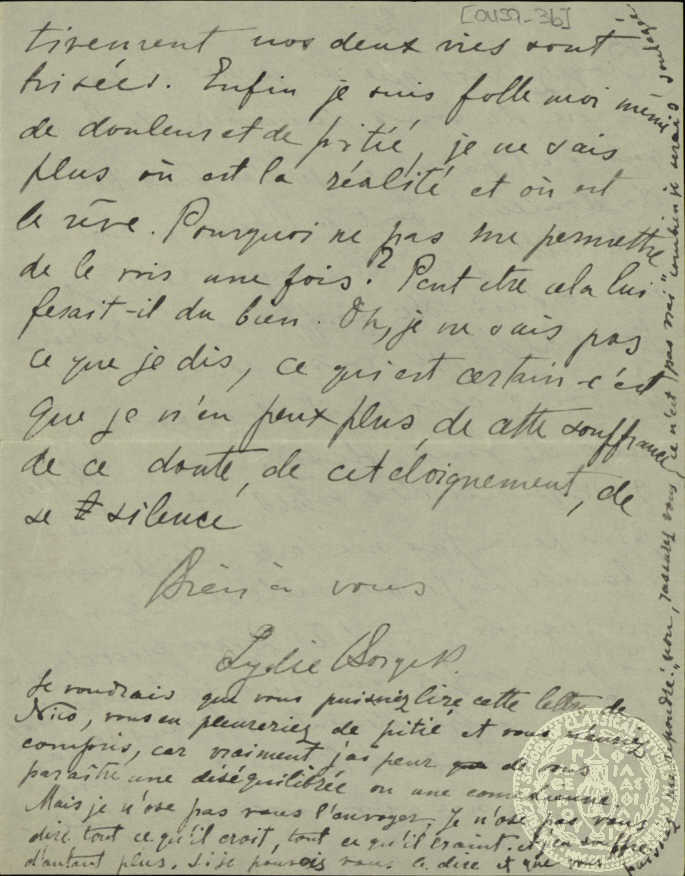 [OV39-36]
tivement nos deux vies sont
brisées. Enfin je suis folle moi même
de douleur et de pitié, je ne sais
plus où est la réalité et où est
le rêve. Pourquoi ne pas me permettre
de le voir une fois? Peut être cela lui
ferait-il du bien. Oh, je ne sais pas
ce que je dis, ce qui est certain c'est
que je n'en peux plus, de cette souffrance
de ce doute, de cet éloignement, de
se silence
Bien à vous
Lydie
Je voudrais que vous puissiez lire cette lettre de
Nico, vous en pleureriez de pitié et vous
compris, car vraiment j'ai peur de vous
paraître une déséquilibrée ou une comédienne.
Mais je n'ose pas vous l'envoyer. Je n'ose pas vous
dire tout ce qu'il croit, tout ce qu'il craint. et j'en souffre
d'autant plus. Si je pouvais vous le dire et que vous
puissiez me répondre: "non, rassurez vous, ce n'est pas vrai" combien je serais soulagée